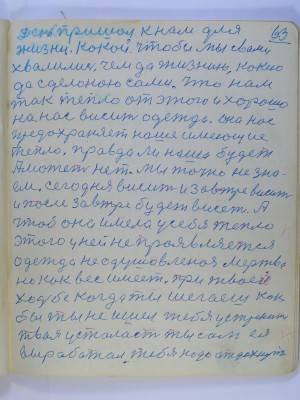 63
День пришол к нам для
жизни. Какой, чтобы мы сами
хвалилис. чем да жизнию, какою
да сделоною сами. Что нам
так тепло от этого и хорошо
на нас висит одежда. она нас
предохраняет наше имеющие
тепло. правда ли наша будет
А может нет. мы точно не зна-
ем. сегодня висит и завтре висит
и после завтре будет висет. А
чтоб она имела у себя тепло
этого у ней не проявляется
одежда не одушовленая мертва
ни как вес имеет. при твоей
ходьбе когда ты шегаеш как
бы ты не шел тебя
твая усталаст ты сам ея
выработал, тебя надо отдохнут